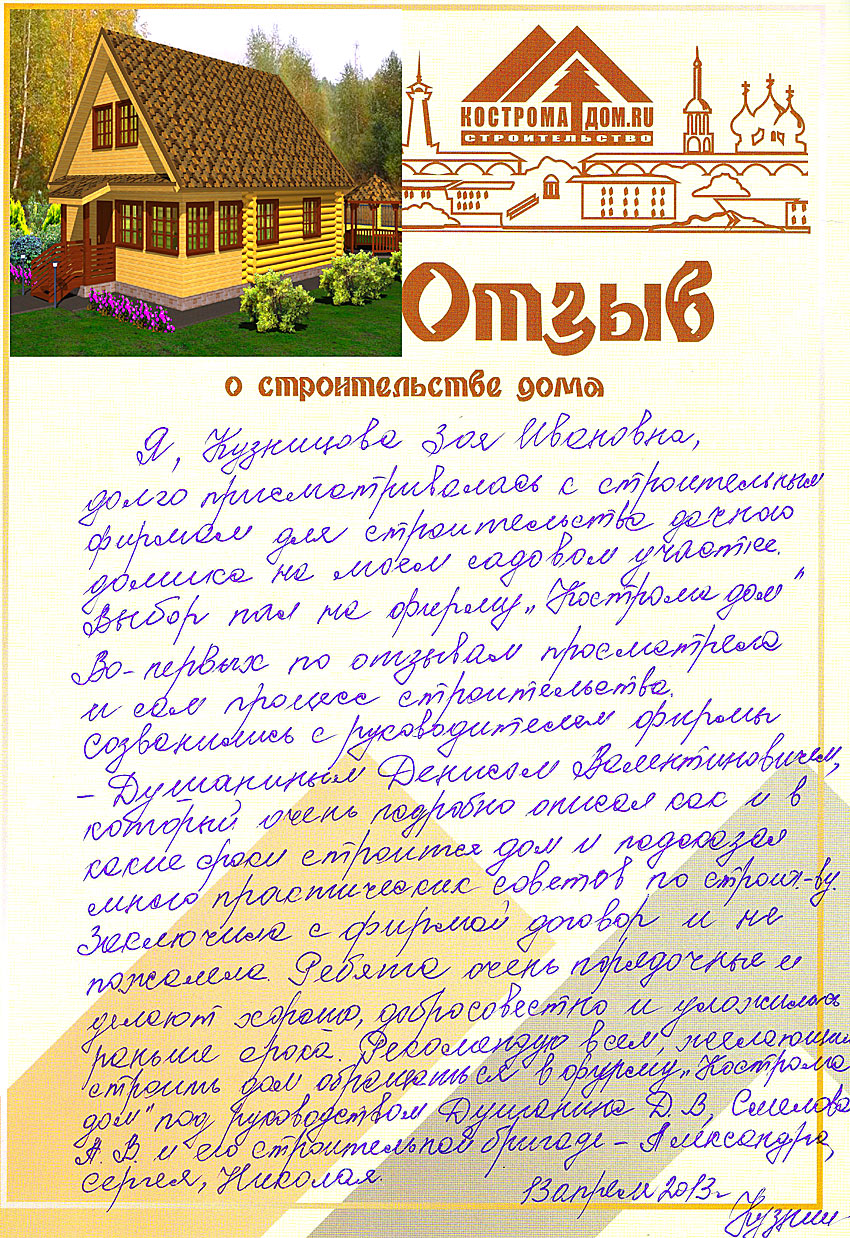 КОСТРОМА ДОМ.RU
СТРОИТЕЛЬСТВО
Отзыв
о строительстве дома
Я, Кузницова Зоя Ивановна,
долго присматривалась к строительным
фирмам для строительства дачного
домика на моем садовом участке.
Выбор пал на фирму „Кострома дом"
Во-первых по отзывам просмотрела
и сам процесс строительства.
Созванились с руководителем фирмы
– Душаниным Денисом Валентиновичем,
который очень подробно описал как и в
какие сроки строится дом и подсказал
много практических советов по строит-ву.
Заключила с фирмой договор и не
пожалела. Ребята очень порядочные и
делают хорошо, добросовестно и уложились
раньше срока. Рекомендую всем желающим
строить дом обращаться в фирму „Кострома
дом" под руководством Душанина Д.В, Смелова
А.В. и его строительной бригаде – Александра,
Сергея, Николая.
13 апреля 2013г
Кузниц